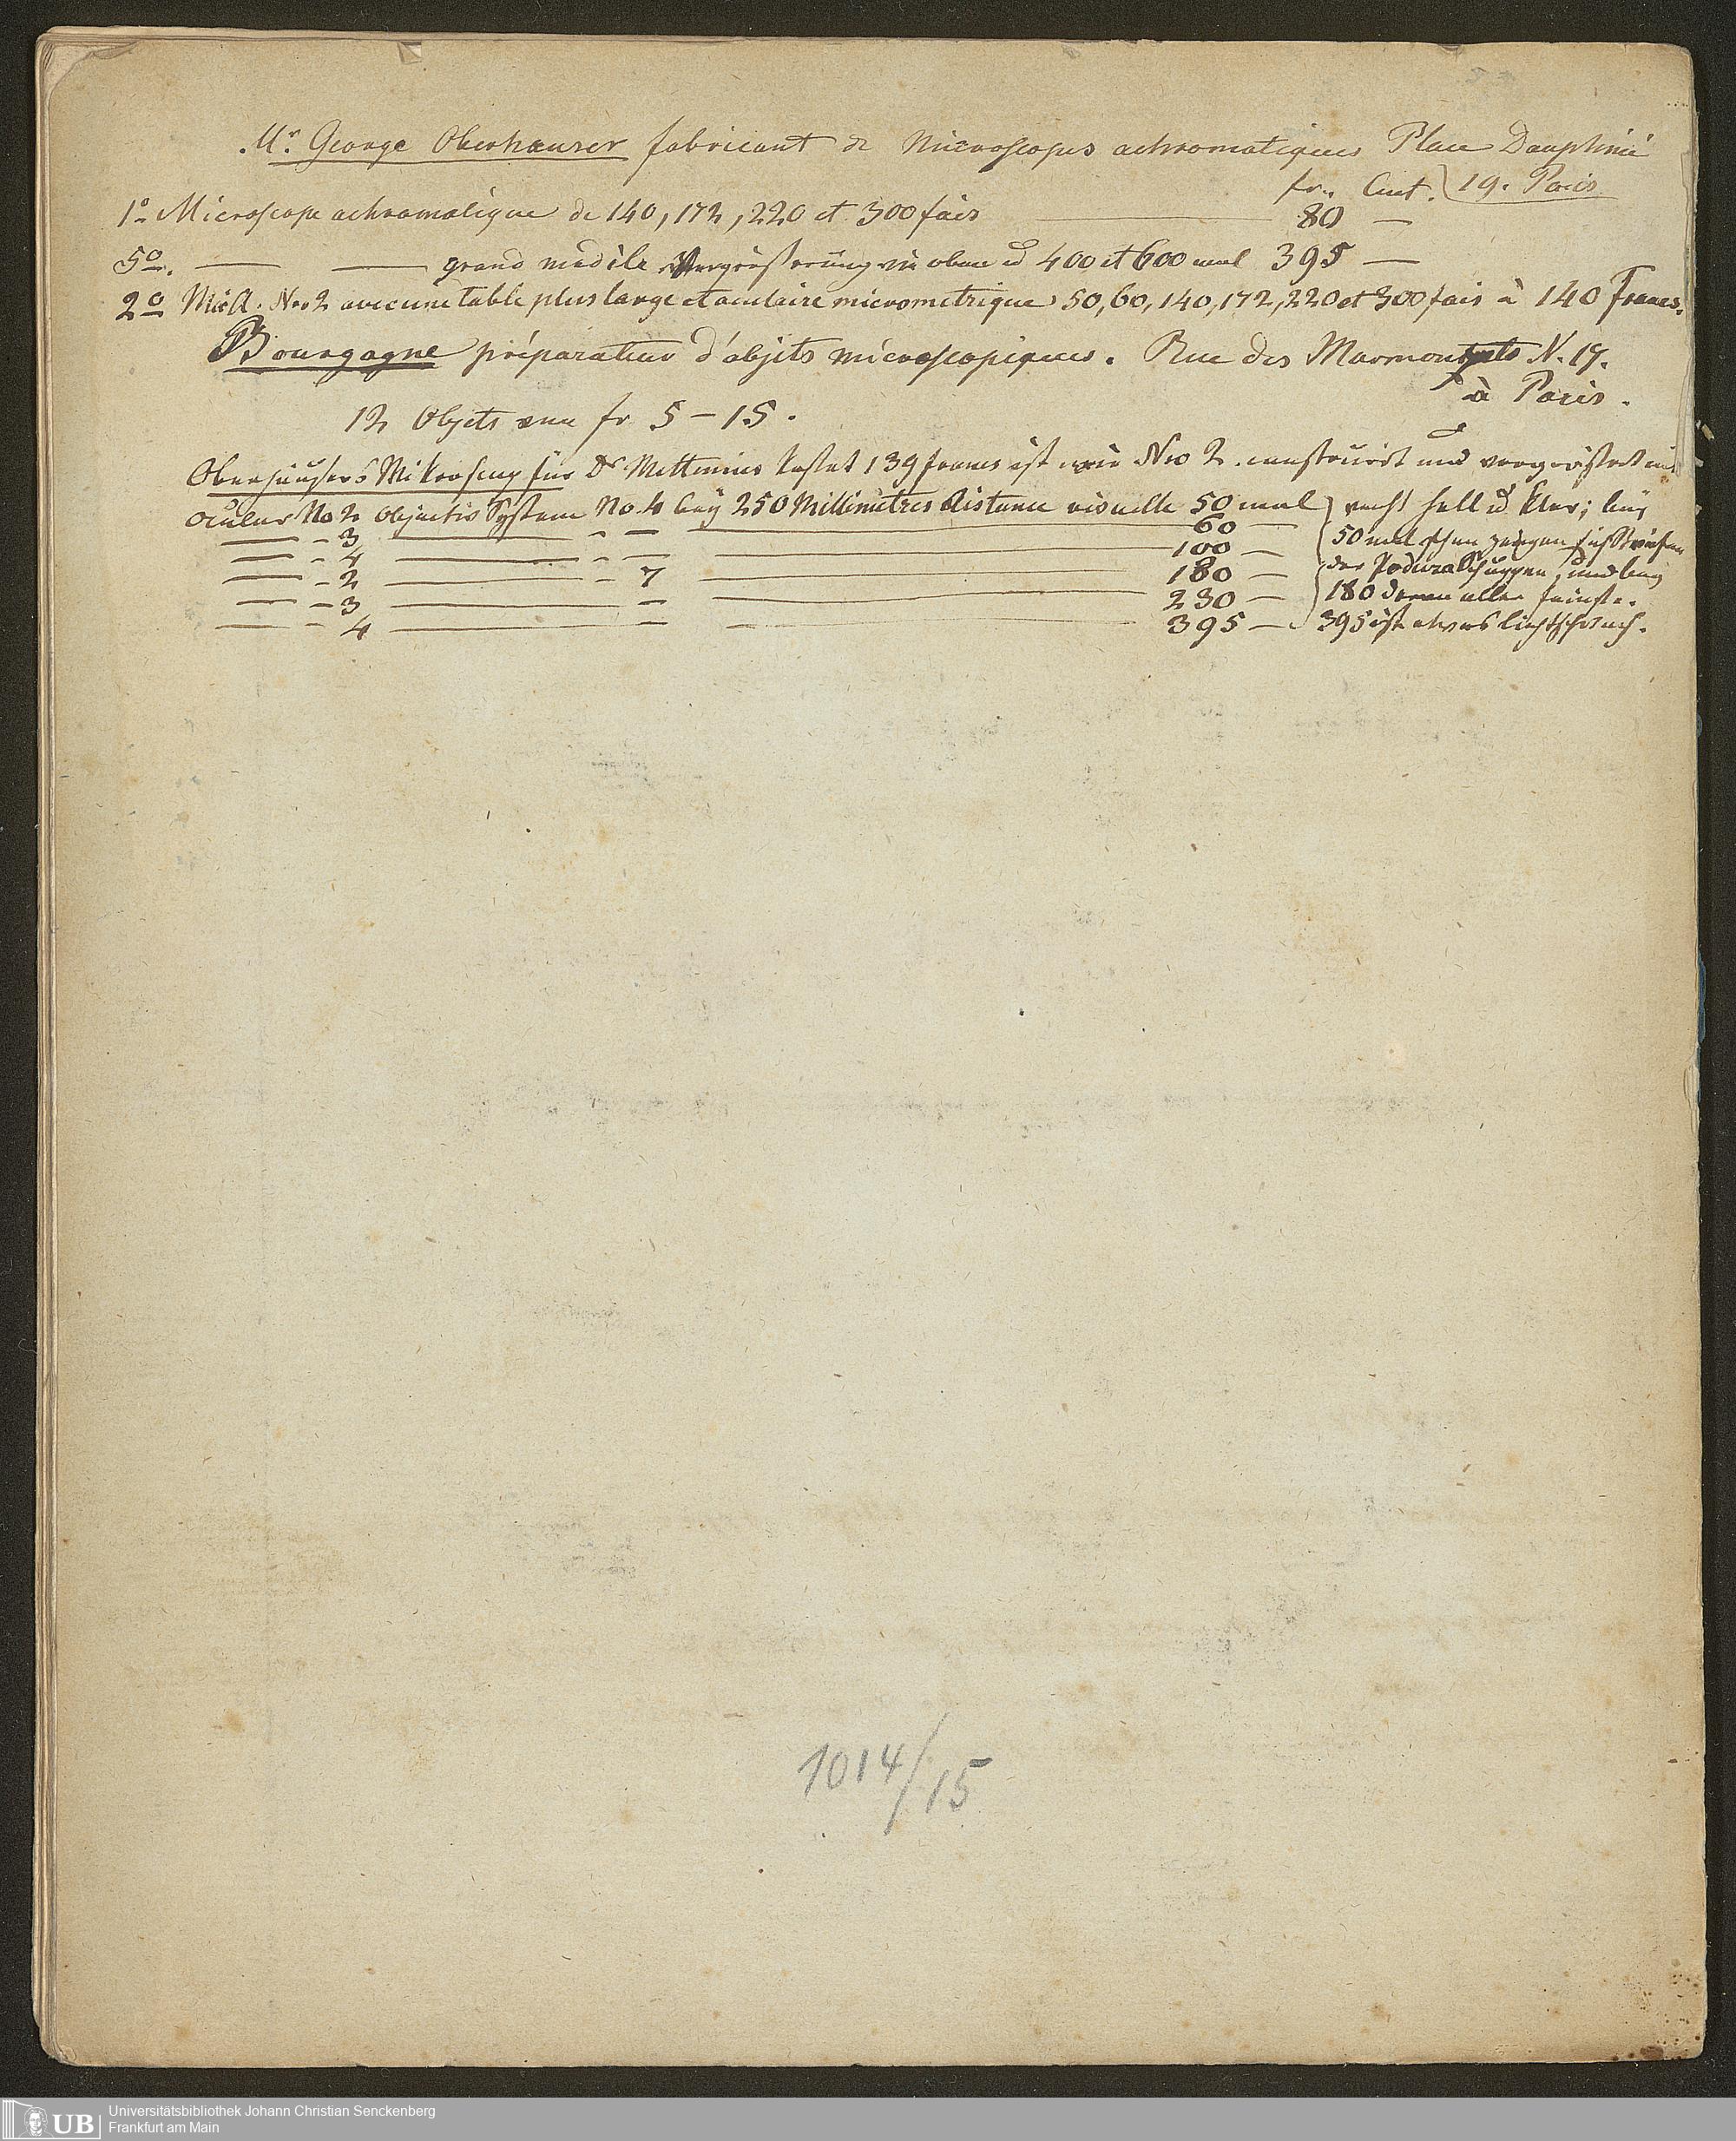 Mr. George Oberhauser fabricant de Microscopes achromatiques Place Dauphiné
fr. Cent. 19. Paris
1o Microscope achromatique de 140, 172, 220 et 300 fois 80 —
5o. — — grand modèle Vergrößerung wie oben u 400 et 600 mal 395 —
2o Nro 2 avec une table plus large et oculaire micrometrique 50, 60, 140, 172, 220 et 300 fois à 140 Francs.
Bourgogne préparateur d'objets microscopiques. Rue des N. 19.
à Paris.
12 Objets fr 5 – 15.
Oberhäusers Mikroscop für Dr. Mettenius kostet 139 francs ist wie Nro 2. construirt und vergrössert mit
Ocular No 2 Objectiv System No. 4 bey 250 Millimetres distance visuelle 50 mal } recht hell u klar; bey
— - 3 — - — — 60 — 50 mal schon zeigen sich
— - 4 — - — — 100 — der Podura Schuppen, und bey
— - 2 — - 7 — 180 — 180 deren aller feinste.
— - 3 — — — 230 —
— - 4 — — — 395 — 395 ist etwas lichtschwach.
1014/15
UB Universitätsbibliothek Johann Christian Senckenberg
Frankfurt am Main